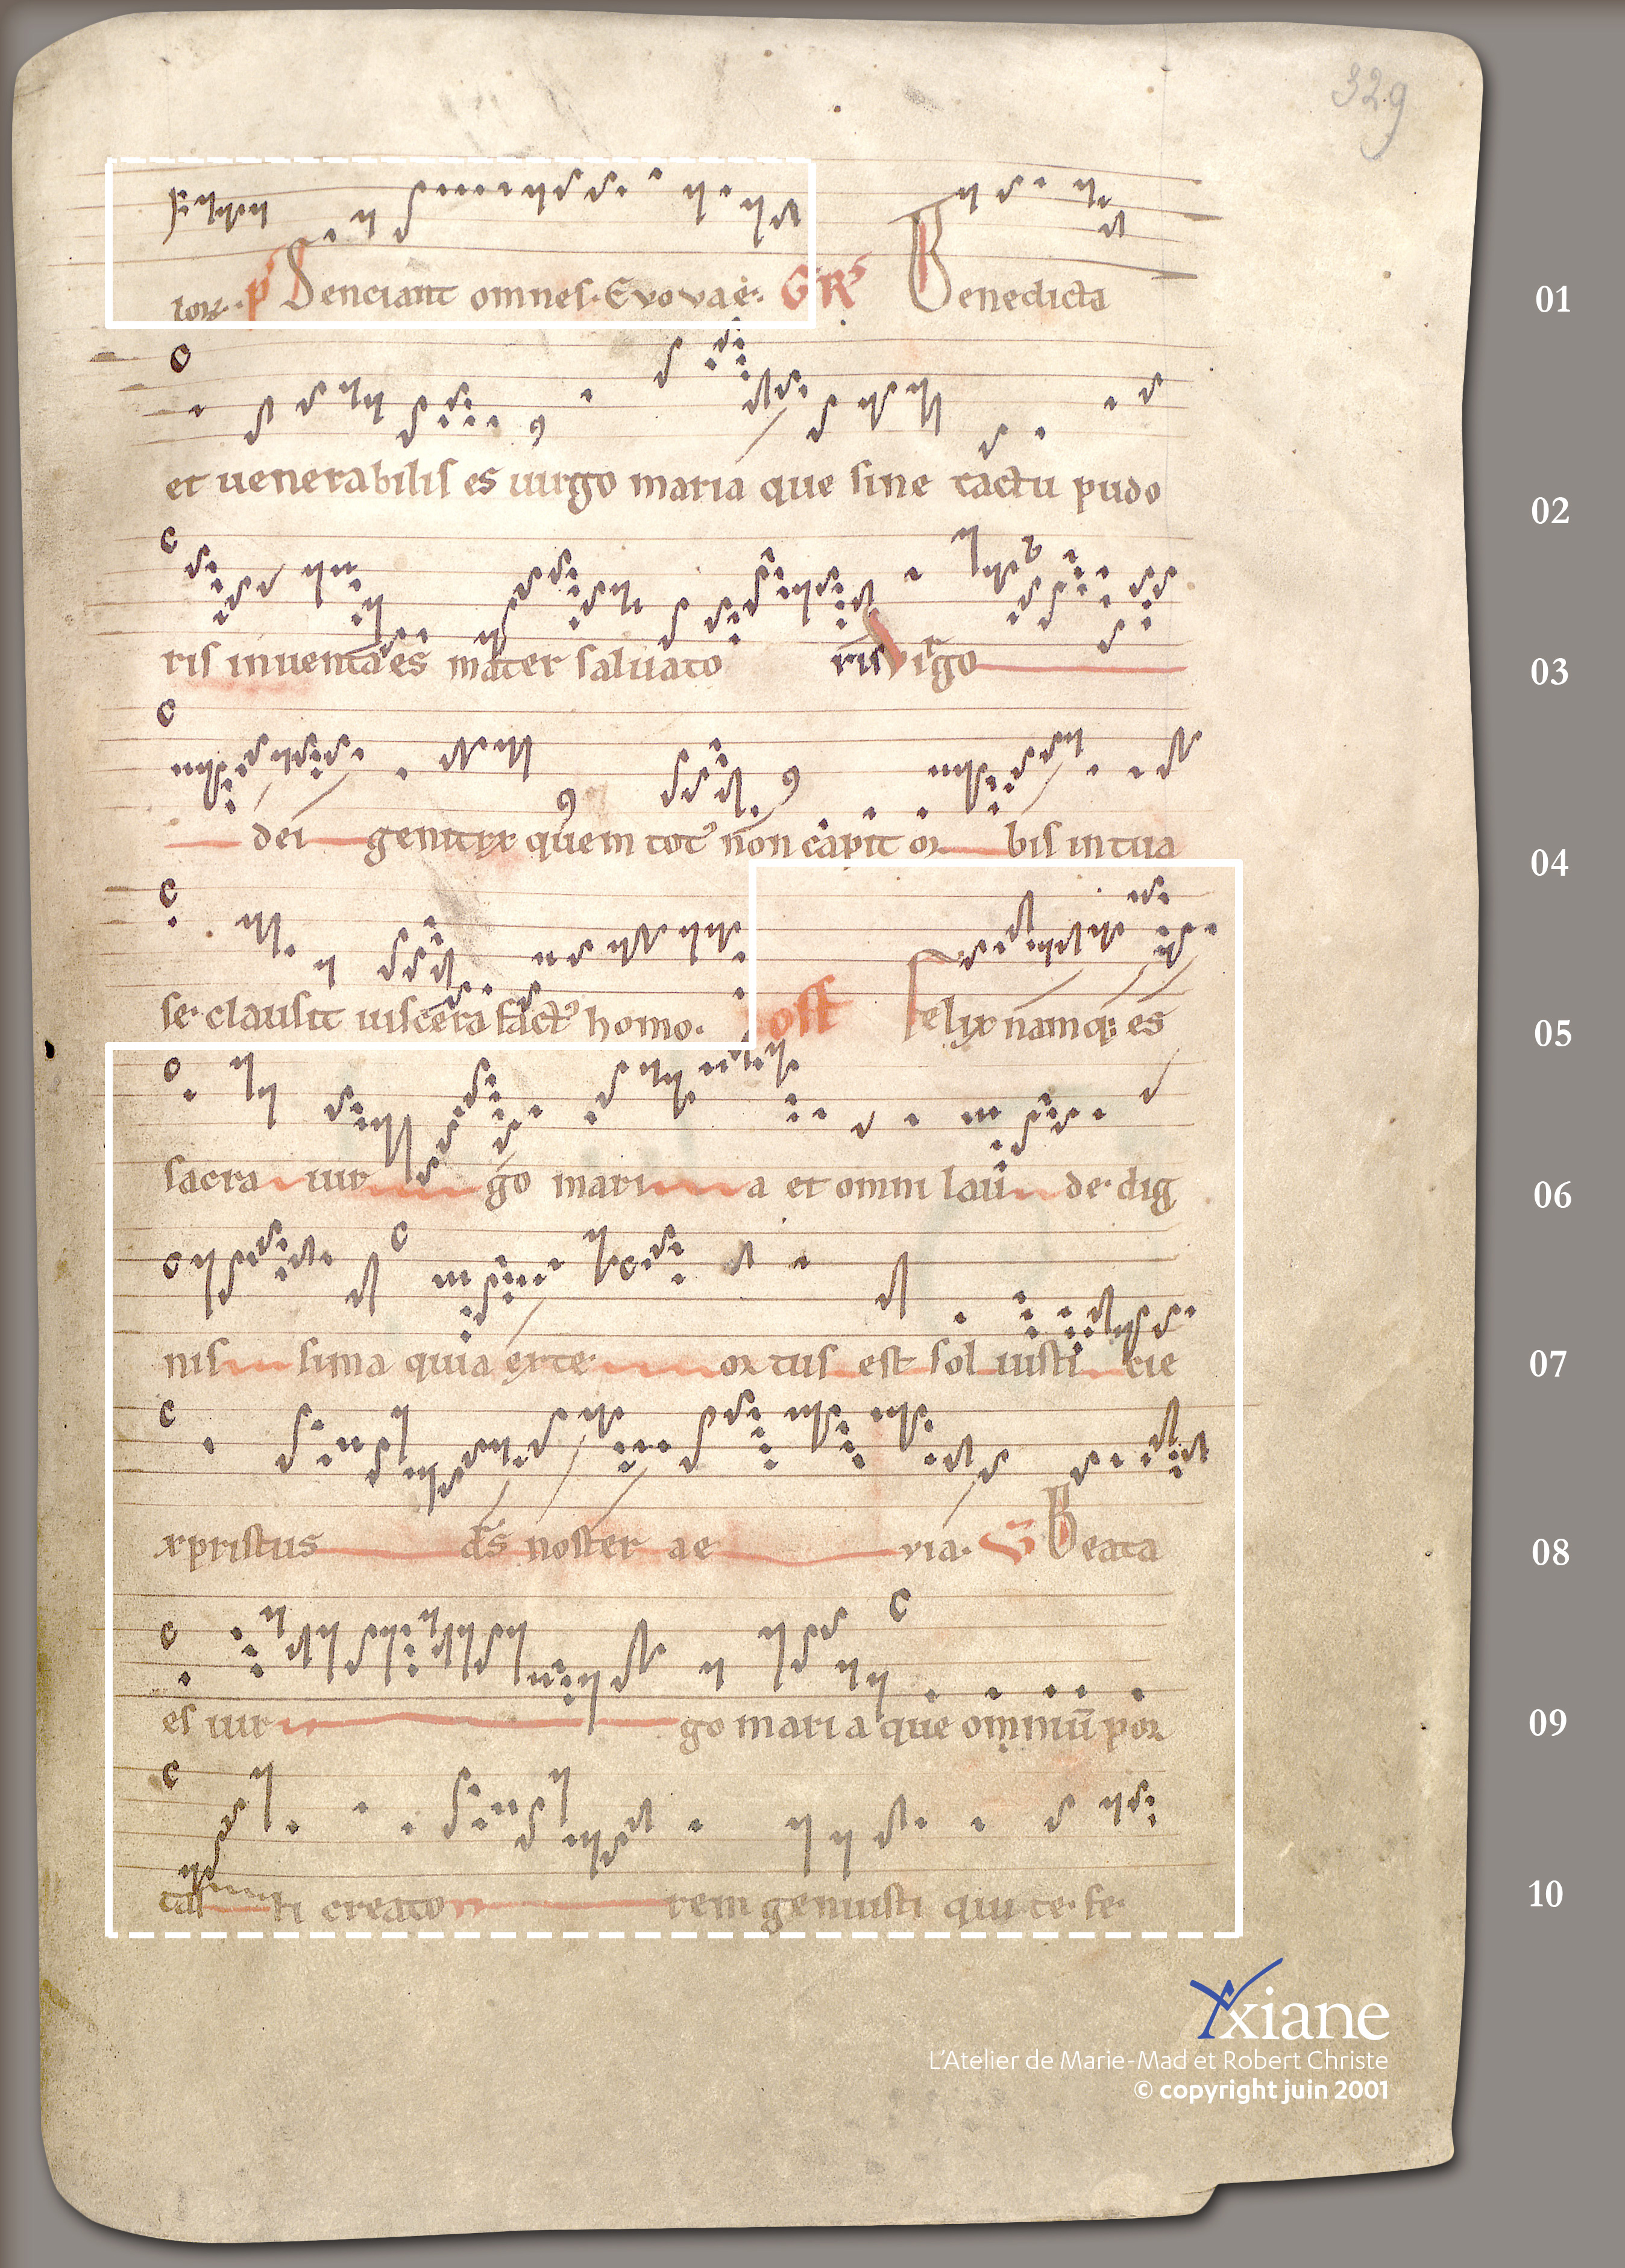 329
torum. p Senciant omnes. Evovae. GR Benedicta 01
et uenerabilis es uirgo maria que sine tactu pudo 02
ris inuenta es mater saluato ris Virgo 03
dei genitrix quem tot' non capit or bis in tua 04
se clausit uiscera fact' homo. off felix namq; es 05
sacra uir go mari a et omni lau de dig 06
nis sima quia ex te ortus est sol iusti cie 07
xpristus ds noster ae via. V Beata 08
es uir go mari a que omniū por 09
tas ti creato rem genuisti qui te fe 10
xiane
L'Atelier de Marie-Mad et Robert Christe
© copyright juin 2001